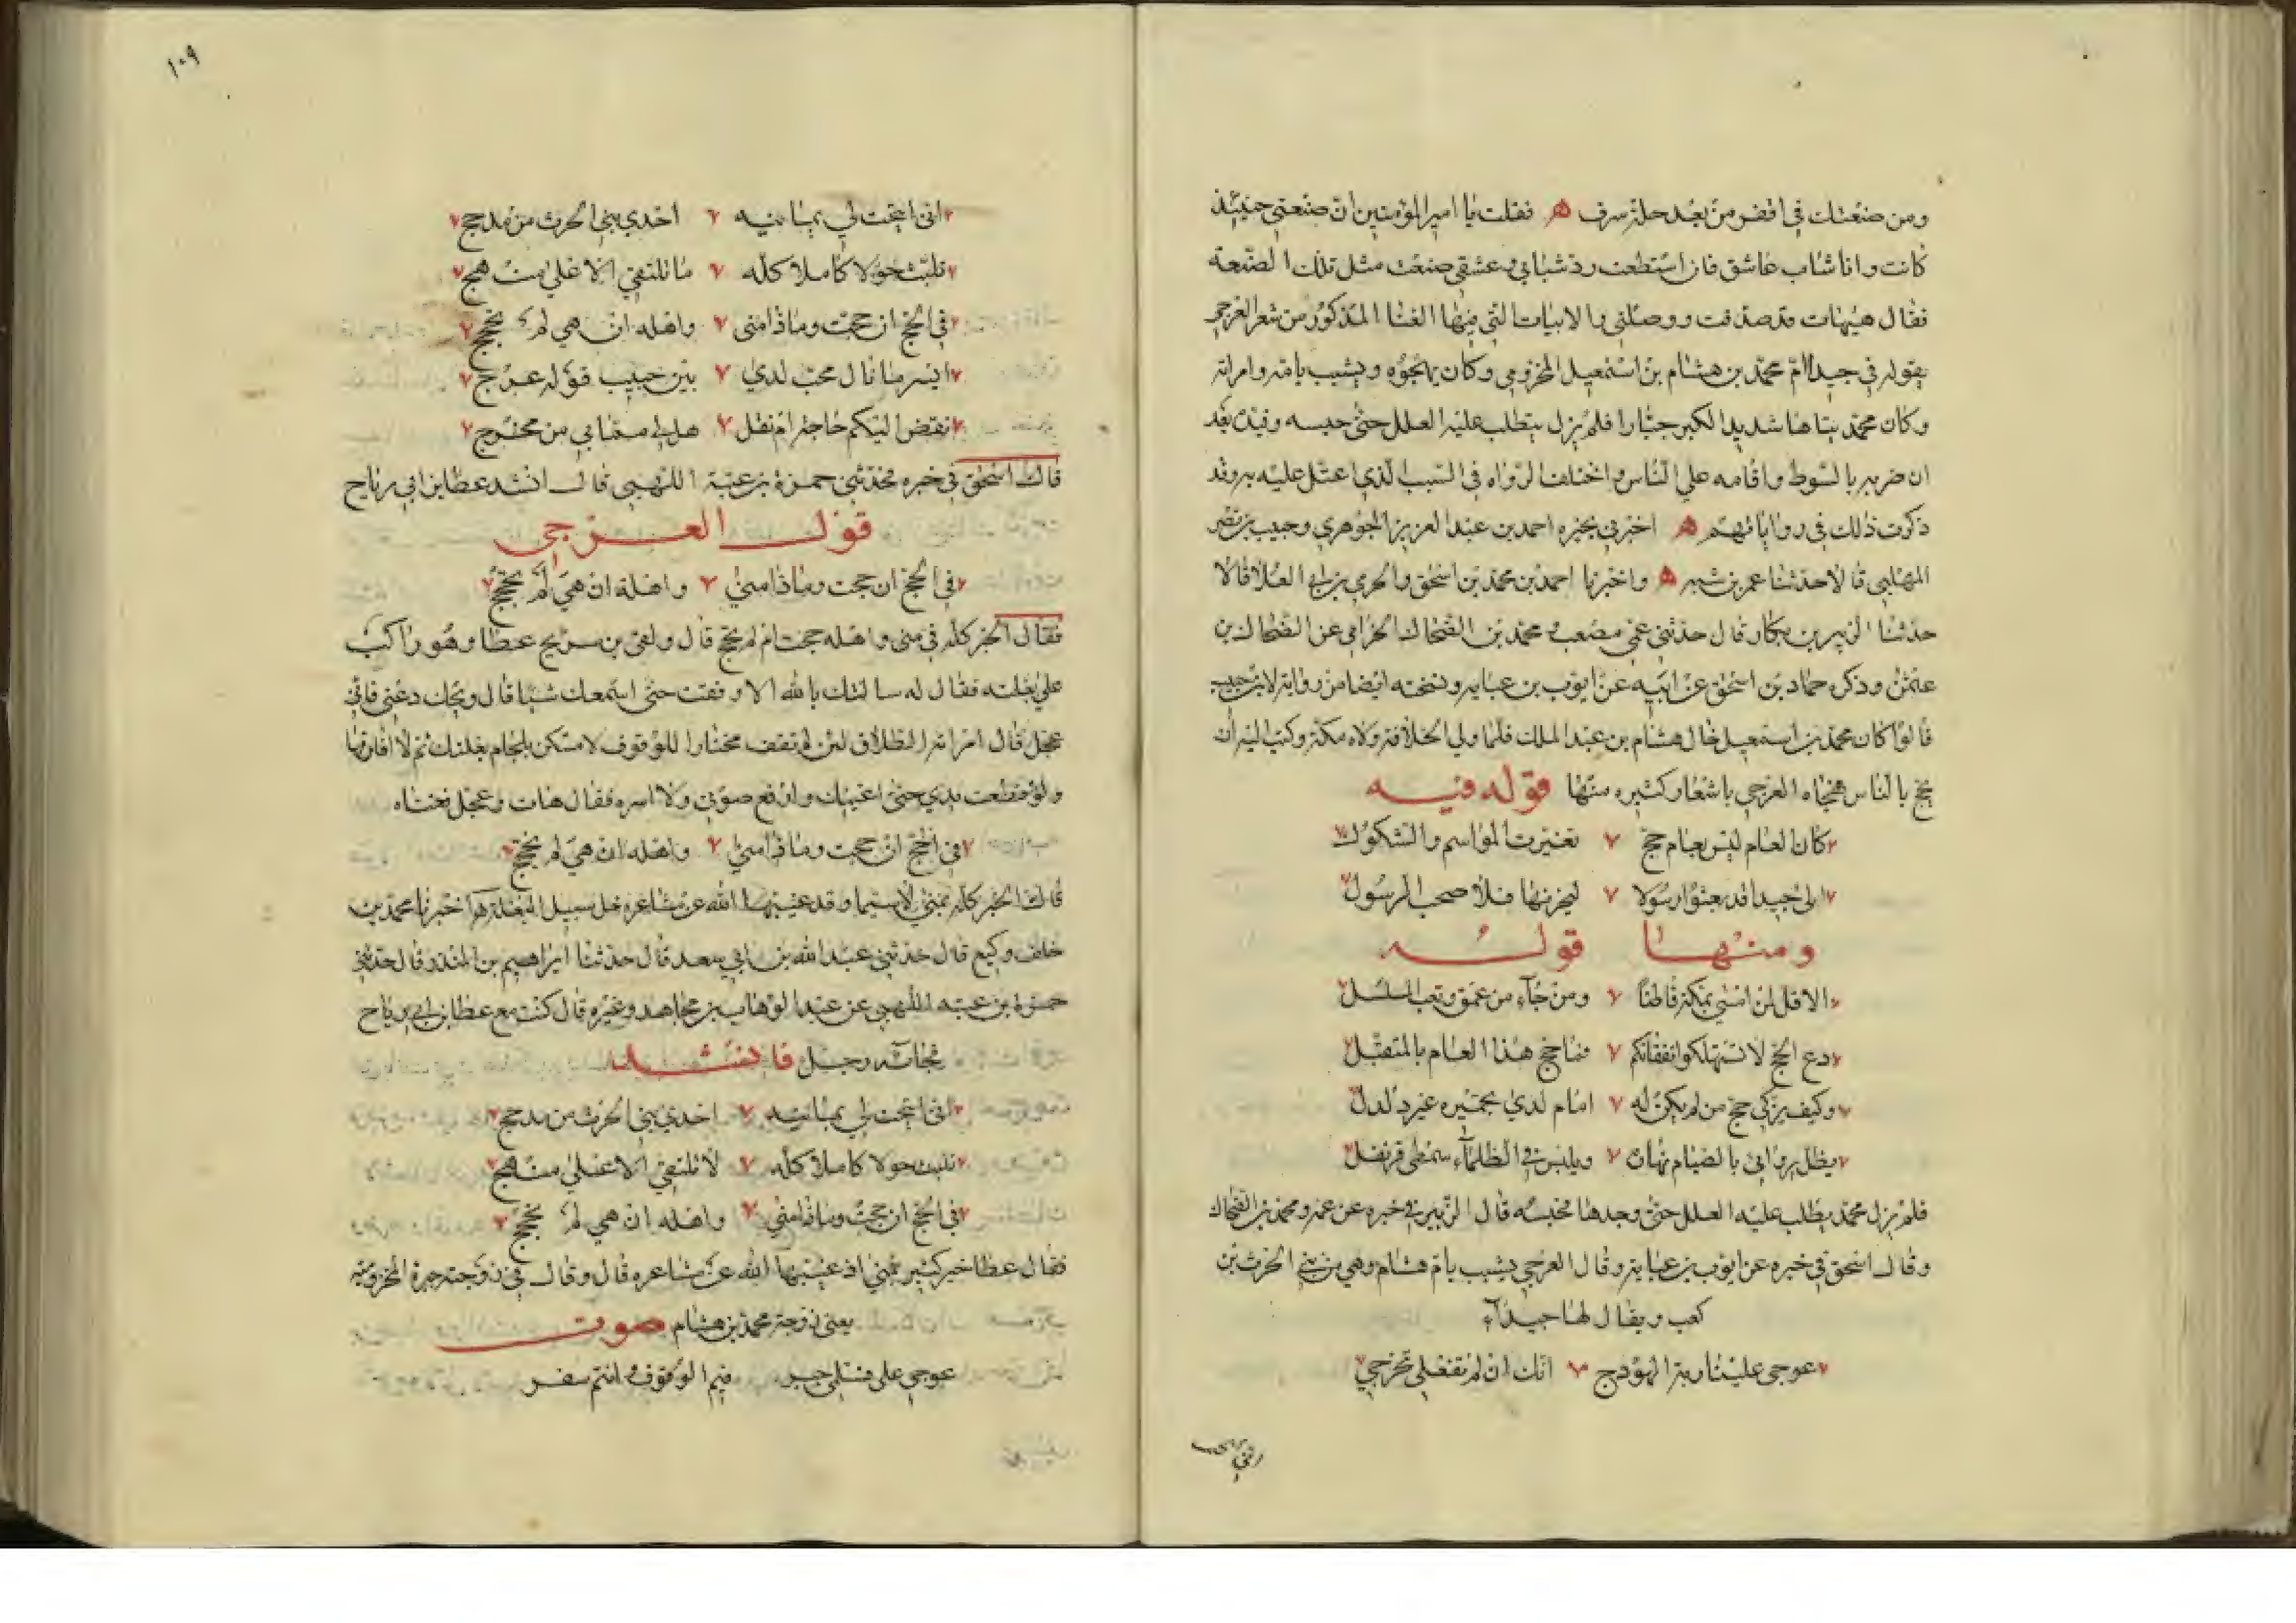 ومن صنعتك في اقفر من بعد حلة سرف ه فقلت يا امير المؤمنين ان صنعتي حينئذ
كانت وانا شاب عاشق فان استطعت رد شبابي وعشقي صنعت مثل تلك الصنعة
فقال هيهات قد صدقت ووصلني والابيات التي فيها الغنا المذكور من شعر العرجي
يقوله في جيدا ام محمد بن هشام بن اسمعيل المخزومي وكان يهجوه ويشبب بامه وامراته
وكان محمد تياها شديد الكبر جبارا فلم يزل يتطلب عليه العلل حتى حبسه وقيده بعد
ان ضربه بالسوط واقامه علي الناس واختلف الرواه في السبب الذي اعتل عليه به وقد
ذكرت ذلك في رواياتهم ه اخبرني بخبره احمد بن عبد العزيز الجوهري وحبيب بن نصر
المهلبي قالا حدثنا عمر بن شبه ه واخبرنا احمد بن محمد بن اسحق والحرمي بن ابي العلا قالا
حدثنا الزبير بن بكار قال حدثني عمي مصعب ومحمد بن الضحاك الحزامي عن الضحاك بن
عثمن وذكره حماد بن اسحق عن ابيه عن ايوب بن عبايه ونسخته ايضا من رواية لابن حبيب
قالوا كان محمد بن اسمعيل خال هشام بن عبد الملك فلما ولي الخلافة ولاه مكة وكتب اليه ان
يحج بالناس فهجاه العرجي باشعار كثيره منها قوله فيه
كان العام ليس بعام حج تغيرت المواسم والشكول
الى جيدا قد بعثوا رسولا ليحزنها فلا صحب الرسول
ومنها قوله
الا قل لمن امسي بمكة قاطنا ومن جآء من عمق ونقب المشلل
دع الحج لا تستهلكوا نفقاتكم فما حج هذا العام بالمتقبل
وكيف يزكي حج من لم يكن له امام لدي تجميره غير دلدل
يظل يرائي بالصيام نهاره ويلبس في الظلمآء سمطي قرنفل
فلم يزل محمد يطلب عليه العلل حتى وجدها فحبسه قال الزبير في خبره عن عمه ومحمد بن الضحاك
وقال اسحق في خبره عن ايوب بن عبايه وقال العرجي يشبب بام هشام وهي من بني الحرث بن
كعب ويقال لها جيدآء
عوجي علينا ربة الهودج انك ان لم تفعلي تحرجي
اني اتيحت
١٠٩
اني اتيحت لي يمانيه احدي بني الحرث من مذحج
نلبث حولا كاملا كله ما نلتقي الا علي منهج
في الحج ان حجت وماذا مني واهله ان هي لم تحجج
ايسر ما نال محب لدي بين حبيب قوله عرج
نقض اليكم حاجة ام نقل هل لي مما بي من مخرج
قال اسحق في خبره فحدثني حمزة بن عتبة اللهبي قال انشد عطا بن ابي رباح
قول العرجي
في الحج ان حجت وماذا مني واهله ان هي لم تحجج
فقال الخير كله في مني واهله حجت ام لم تحج قال ولقى بن سريج عطا وهو راكب
علي بغلته فقال له سالتك بالله الا وقفت حتى اسمعك شيا قال ويحك دعني فاني
عجل قال امراته الطلاق لئن لم تقف مختارا للوقوف لامسكن بلجام بغلتك ثم لا افارقها
ولو قطعت يدي حتى اغنيك وارفع صوتي ولا اسره فقال هات وعجل فغناه
في الحج ان حجت وماذا مني واهله ان هي لم تحجج
قال الخير كله بمني لاسيما وقد غيبها الله عن مشاعره خل سبيل البغلة ه اخبرنا محمد بن
خلف وكيع قال حدثني عبد الله بن ابي سعد قال حدثنا ابراهيم بن المنذر قال حدثني
حمزة بن عتبه اللهبي عن عبد الوهاب بن مجاهد وغيره قال كنت مع عطا بن ابي رباح
فجآه رجل فانشده
اني اتيحت لي يمانيه احدي بني الحرث من مذحج
نلبث حولا كاملا كله لا نلتقي الا علي منهج
في الحج ان حجت وماذا مني واهله ان هي لم تحجج
فقال عطا خير كثير بمني اذ غيبها الله عن مشاعره قال وقال في زوجته جبرة المخزوميه
يعني زوجة محمد بن هشام صوت
عوجي على فسلمي جبر فيم الوقوف وانتم سفر